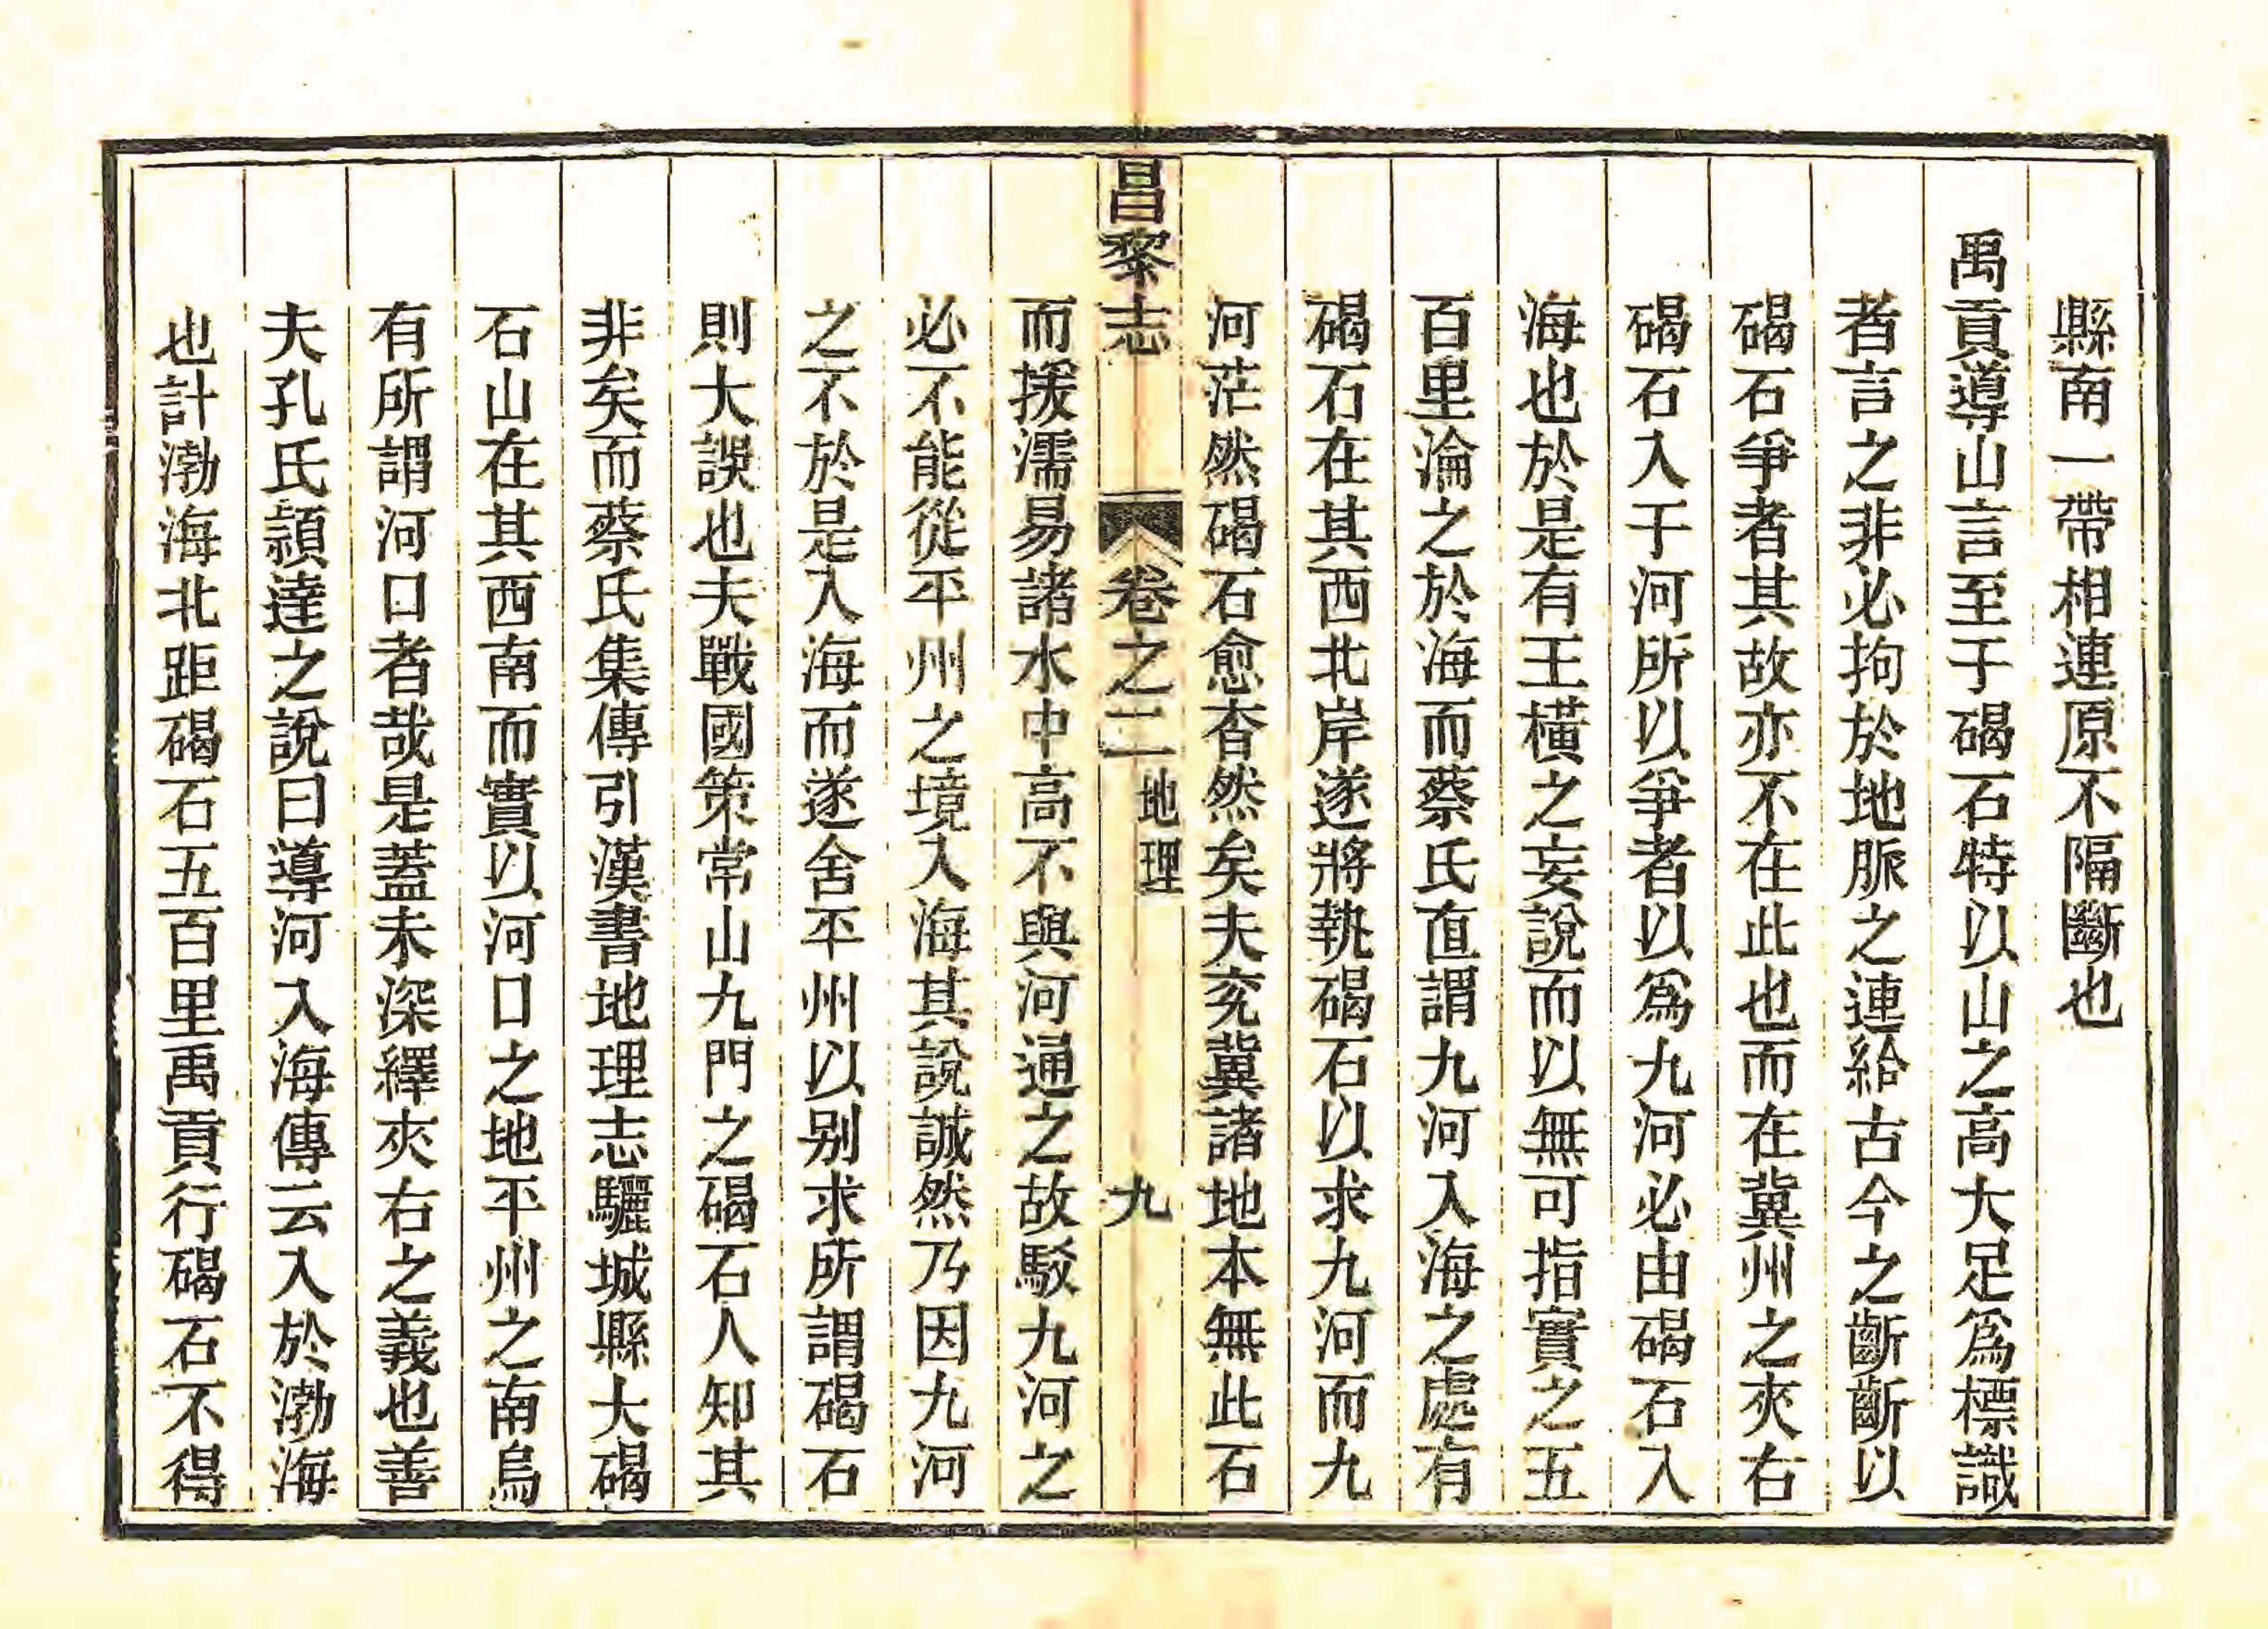 縣南一帶相連原不隔斷也
禹貢導山言至于碣石特以山之高大足爲標識
者言之非必拘於地脈之連給古今之齗齗以
碣石爭者其故亦不在此也而在冀州之夾右
碣石入于河所以爭者以爲九河必由碣石入
海也於是有王橫之妄說而以無可指實之五
百里淪之於海而蔡氏直謂九河入海之處有
碣石在其西北岸遂將執碣石以求九河而九
河茫然碣石愈杳然矣夫兖冀諸地本無此石
昌黎志
卷之二
地理
九
而援濡易諸水中高不與河通之故駁九河之
必不能從平州之境入海其說誠然乃因九河
之不於是入海而遂舍平州以别求所謂碣石
則大誤也夫戰國策常山九門之碣石人知其
非矣而蔡氏集傳引漢書地理志驪城縣大碣
石山在其西南而實以河口之地平州之南烏
有所謂河口者哉是蓋未深繹夾右之義也善
夫孔氏頴達之說曰導河入海傳云入於渤海
也計渤海北距碣石五百里禹貢行碣石不得